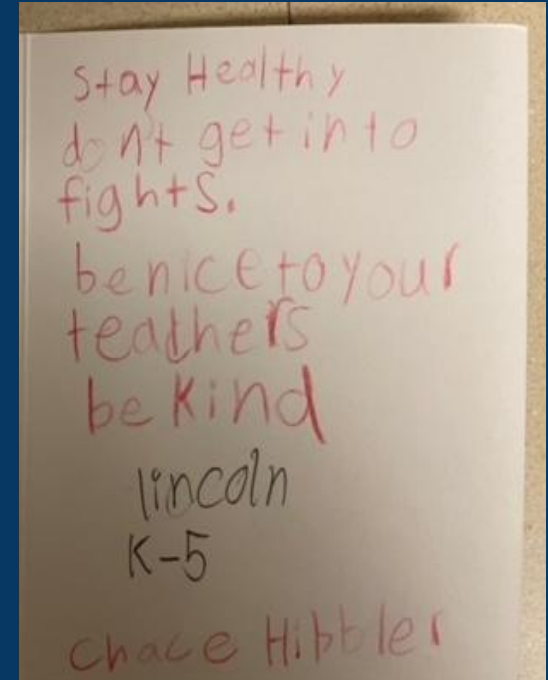 Stay Healthy
don't get into
fights.
be nice to your
teachers
be Kind
lincoln
K-5
chace Hibbler